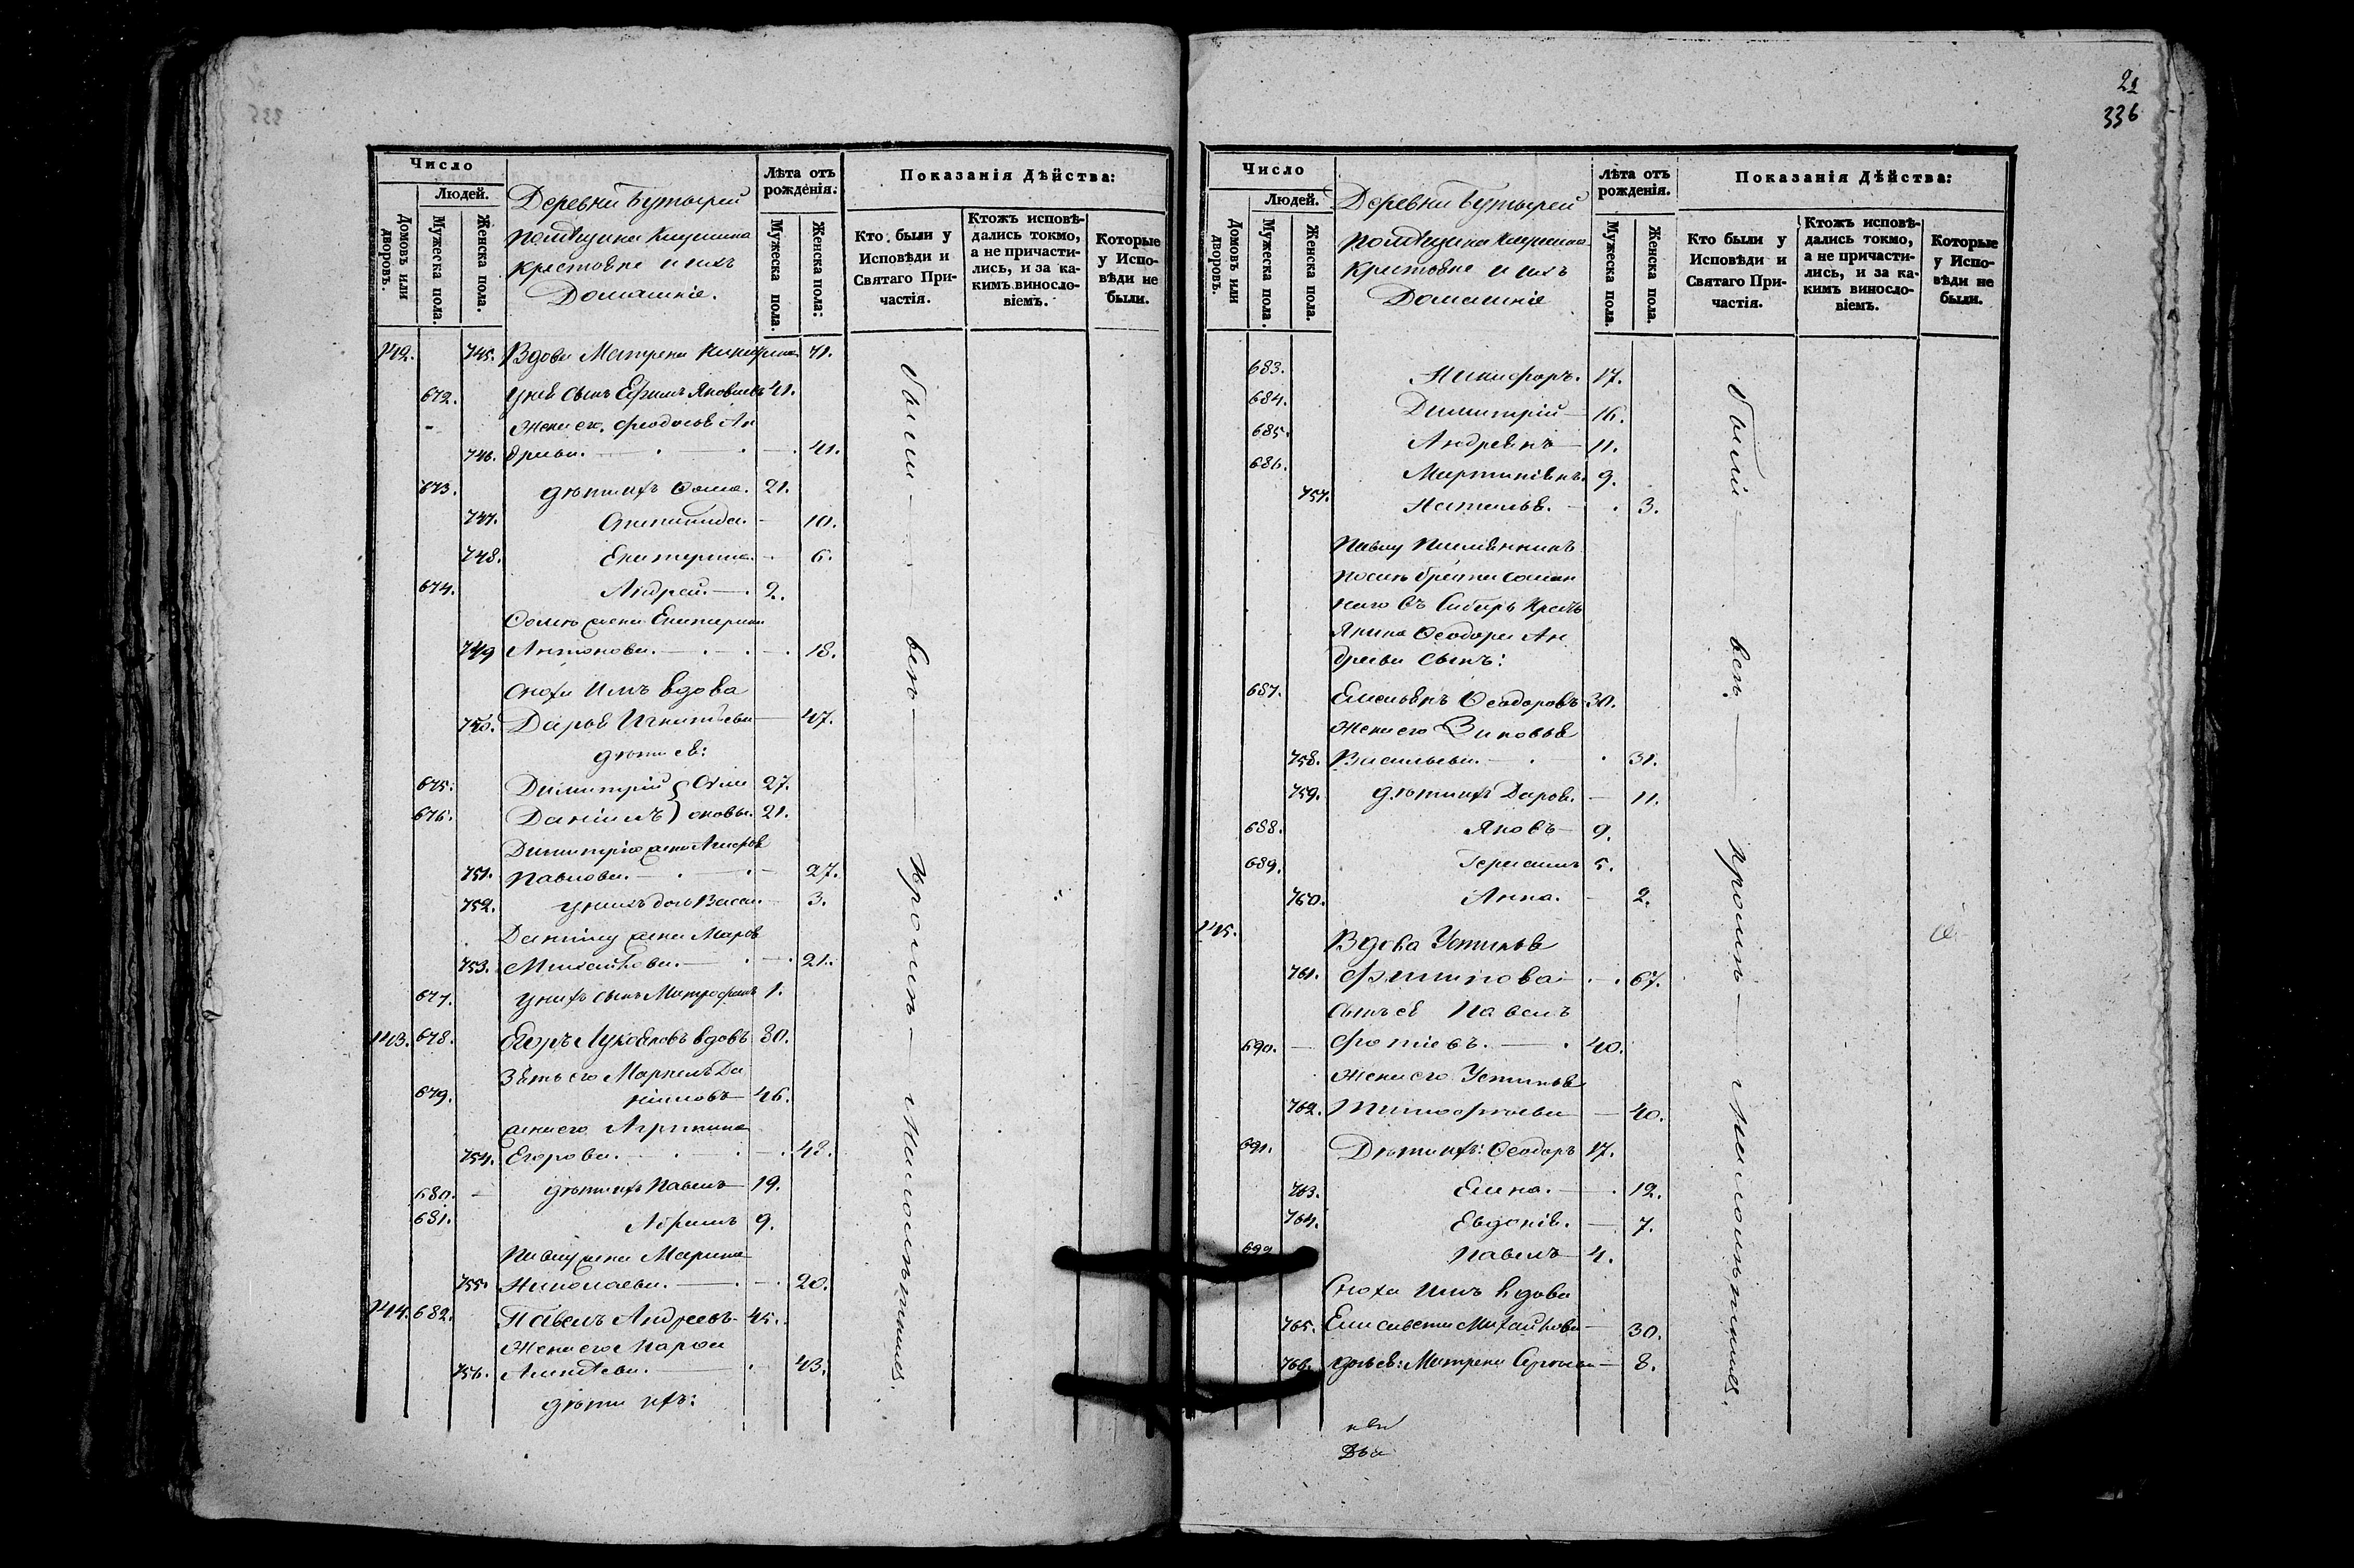 22
336
Число
Людей.
Домовъ или дворовъ.
Мужеска пола.
Женска пола.
Деревни Бутырей
помѣщика
крестьяне и ихъ
Домашніе.
Лѣта отъ рожденія.
Мужеска пола.
Женска пола.
Показанія Дѣйства:
Кто были у Исповѣди и Святаго Причастія.
Ктожъ исповѣдались токмо, а не причастились, и за какимъ винословіемъ.
Которые у Исповѣди не были.
142. 745. Вдова Матрена 71.
672. у нея сынъ Ефимъ Яковлевъ 41.
жена его Феодосья Ан
746. дреева. 41.
673. дѣти ихъ Ѳома. 21.
747. Степанида. 10.
748. Екатерина. 6.
674. Андрей. 2.
Ѳомы жена Екатерина
749 Антонова. 18.
сноха имъ вдова
750. Дарья Игнатьева 47.
дѣти ея:
675. Димитрій 27.
676. Даніилъ 21.
Димитрія жена
751. Павлова. 27.
752. у нихъ дочь Васса 3.
Даніилу жена Марья
753. Михайлова. 21.
677. у нихъ сынъ Митрофанъ 1.
143. 678. Егоръ Лукояновъ вдовъ 80.
Зять его Маркелъ Да
679. ниловъ 46.
жена его Агрипина
754. Егорова. 48.
680. дѣти ихъ Павелъ 19.
681. Абрамъ 9.
Павлу жена Марина
755. Николаева. 20.
144. 682. Павелъ Андреевъ 45.
Жена его Марья
756. 43.
дѣти ихъ:
были всѣ кромѣ малолѣтнихъ.
Число
Людей.
Домовъ или дворовъ.
Мужеска пола.
Женска пола.
Деревни Бутырей
помѣщика
крестьяне и ихъ
Домашніе
Лѣта отъ рожденія.
Мужеска пола.
Женска пола.
Показанія Дѣйства:
Кто были у Исповѣди и Святаго Причастія.
Ктожъ исповѣдались токмо, а не причастились, и за какимъ винословіемъ.
Которые у Исповѣди не были.
683. Никифоръ. 17.
684. Димитрій 16.
685. Андреянъ 11.
686. Мартиніянъ 9.
757. Наталья. 3.
Павлу племянникъ
послѣ брата сослан
наго въ Сибирь кресть
янина Ѳеодора Ан
дреева сынъ:
687. Емельянъ Ѳеодоровъ 30.
жена его Зиновья
758. Васильева. 31.
759. дѣти ихъ Дарья. 11.
688. Яковъ 9.
689. Герасимъ 5.
760. Анна. 2.
145. Вдова Устинья
761. Филипова 67.
сынъ ея Павелъ
690. Фотіевъ. 40.
жена его Устинья
762. Тимофеева 40.
691. Дѣти ихъ: Ѳеодоръ 17.
763. Елена. 12.
764. Евдокія. 7.
692 Павелъ 4.
Сноха имъ вдова
765. Елисавета Михайлова 30.
766. дочь ея: Матрена Сергеева 8.
были всѣ кромѣ малолѣтнихъ.